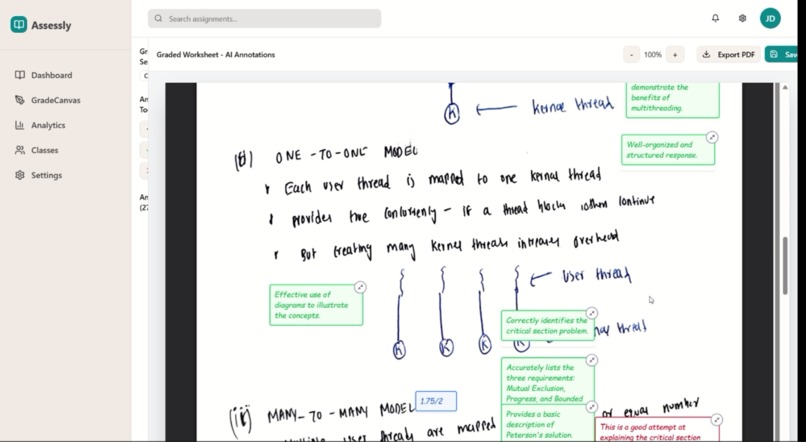 Assessly
Search assignments...
JD
Dashboard
GradeCanvas
Analytics
Classes
Settings
Graded Worksheet - AI Annotations
- 100% +
Export PDF
demonstrate the
benefits of
multithreading.
K ← kernal thread
Well-organized and
structured response.
ONE-TO-ONE MODEL
Each user thread is mapped to one kernal thread
provides true - if a thread blocks continue
But creating many kernel threads increases overhead
← User thread
Effective use of
diagrams to illustrate
the concepts.
Correctly identifies the
critical section problem.
K K K K
Accurately lists the
three requirements:
Mutual Exclusion,
Progress, and Bounded
1.75/2
MANY-TO-MANY MODEL
or equal number
Provides a basic
description of
Peterson's solution.
This is a good attempt at
explaining the critical section
user threads are mapped